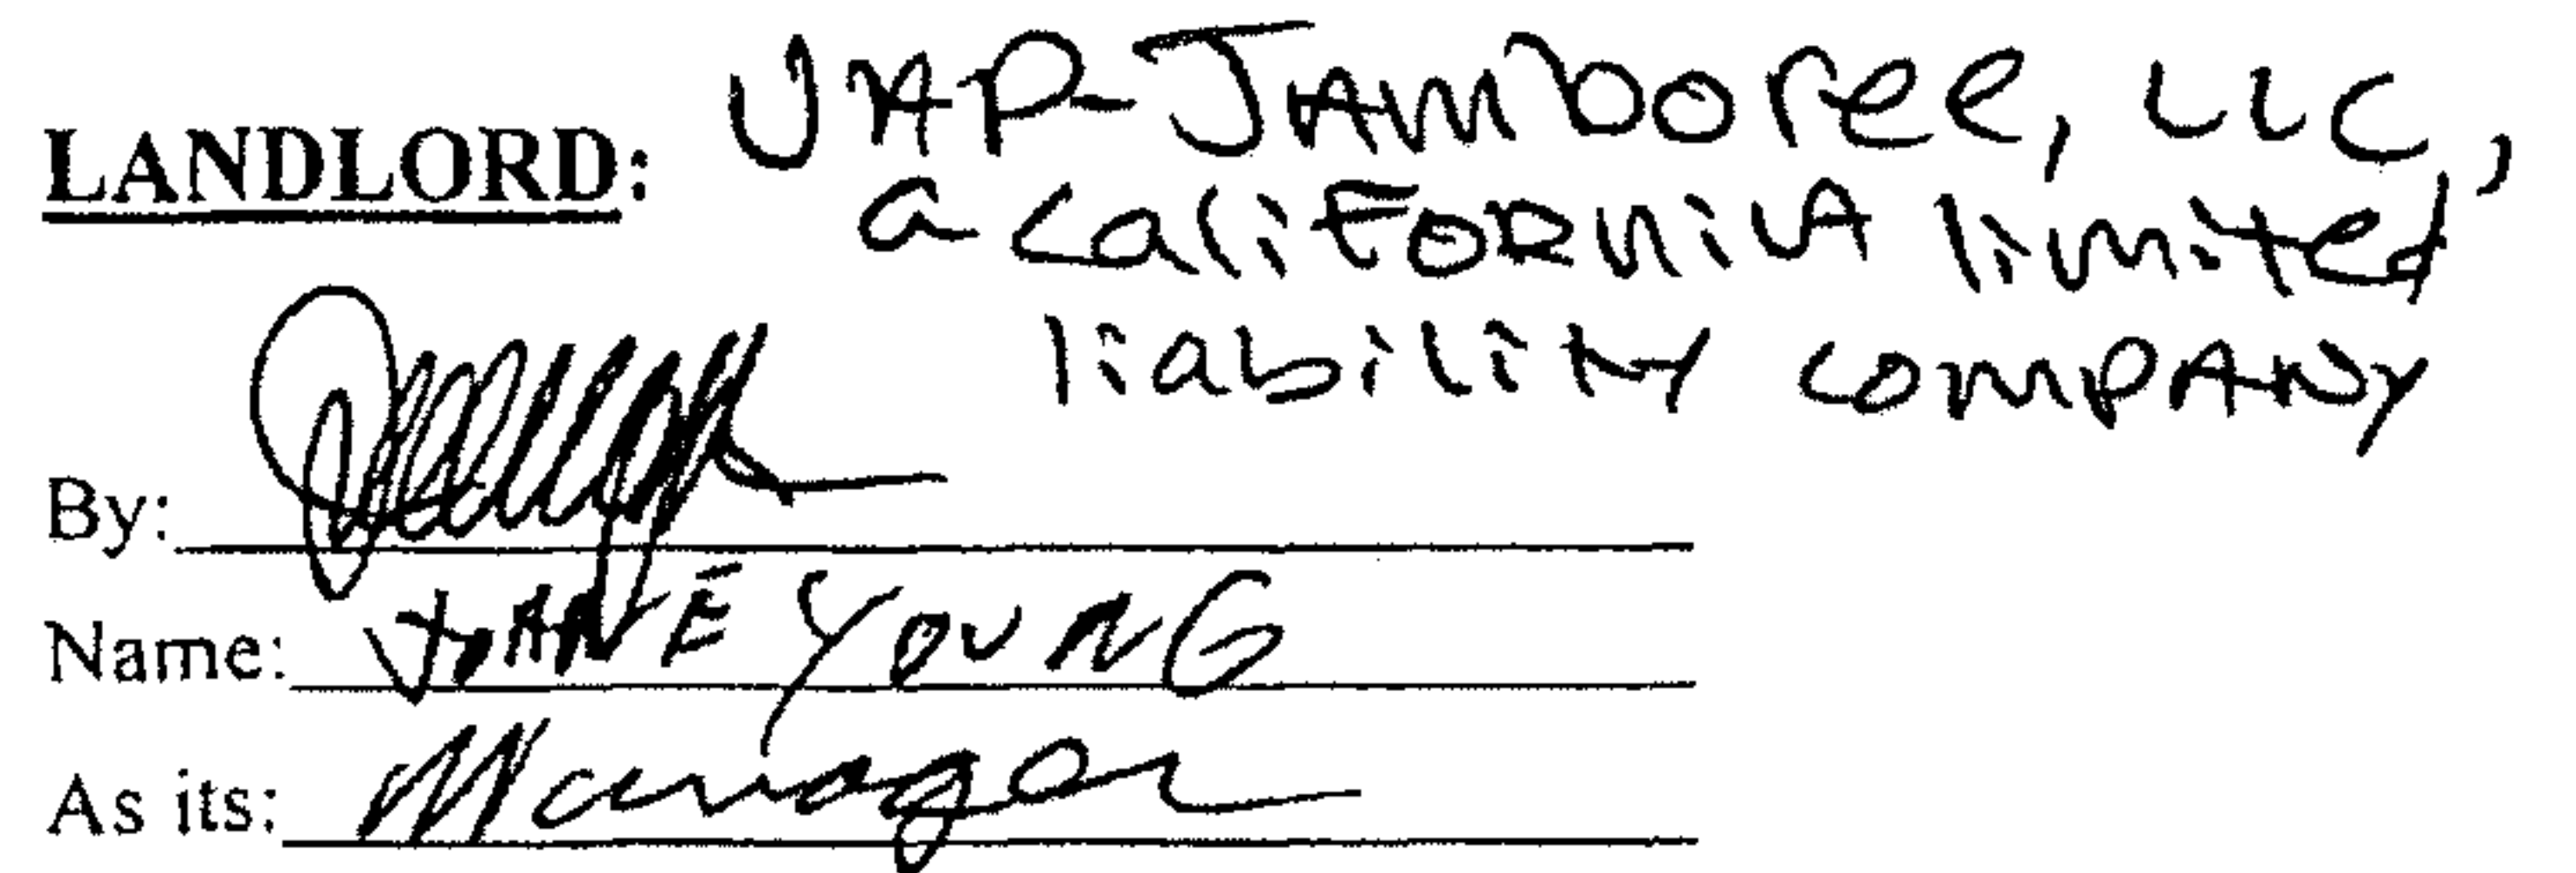 LANDLORD: Jamboree, LLC,
a California limited
liability company
By:
Name: JOANNE YOUNG
As its: Manager